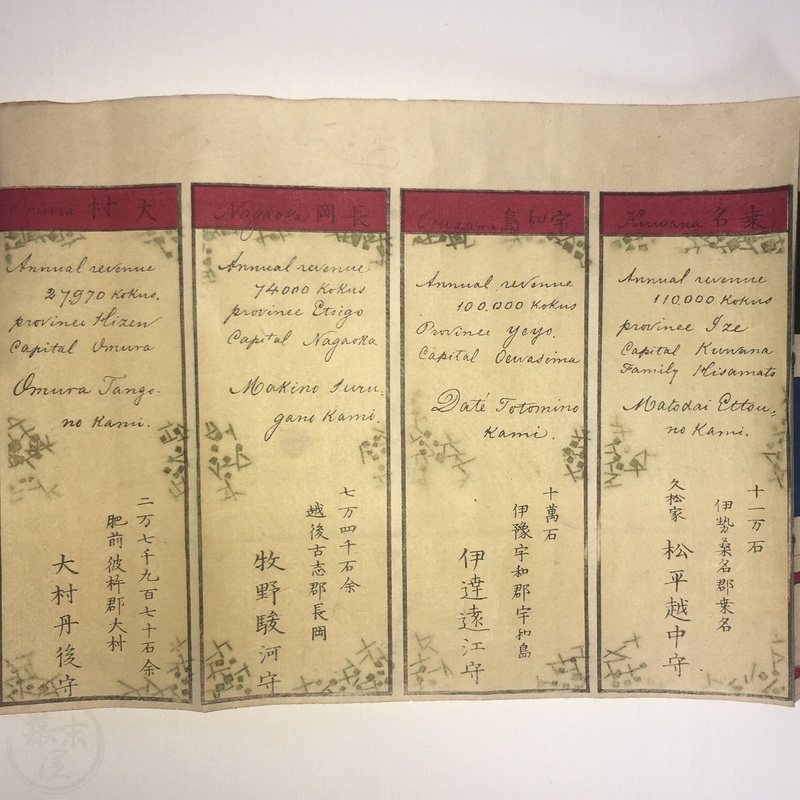 Omura 大村
Annual revenue
27970 Kokus.
province Hizen
Capital Omura
Omura Tango-
no Kami.
二万七千九百七十石余
肥前彼杵郡大村
大村丹後守
Nagaoka 長岡
Annual revenue
74000 Kokus
province Etsigo
Capital Nagaoka
Makino Suru-
gano Kami.
七万四千石余
越後古志郡長岡
牧野駿河守
Owasima 宇和島
Annual revenue
100.000 Kokus
Province Yeyo.
Capital Oewasima
Daté Totomino
Kami.
十萬石
伊豫宇和郡宇和島
伊達遠江守
Kuwana 桒名
Annual revenue
110,000 Kokus
province Ize
Capital Kuwana
Family Hisamato
Matodai Ettsu-
no Kami.
十一万石
伊勢桑名郡桒名
久松家
松平越中守
幕末屋